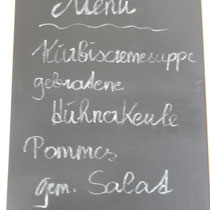 Menü
Kürbiscremesuppe
gebratene
Hühnakeule
Pommes
gem. Salat